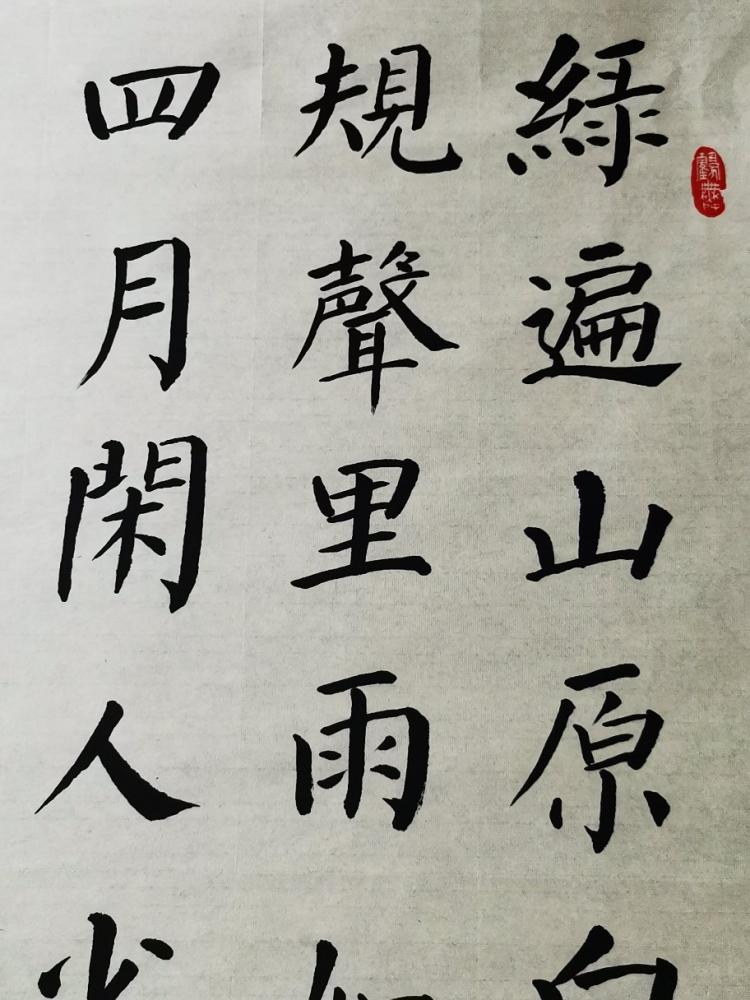 緑遍山原
規聲里雨
四月閑人少